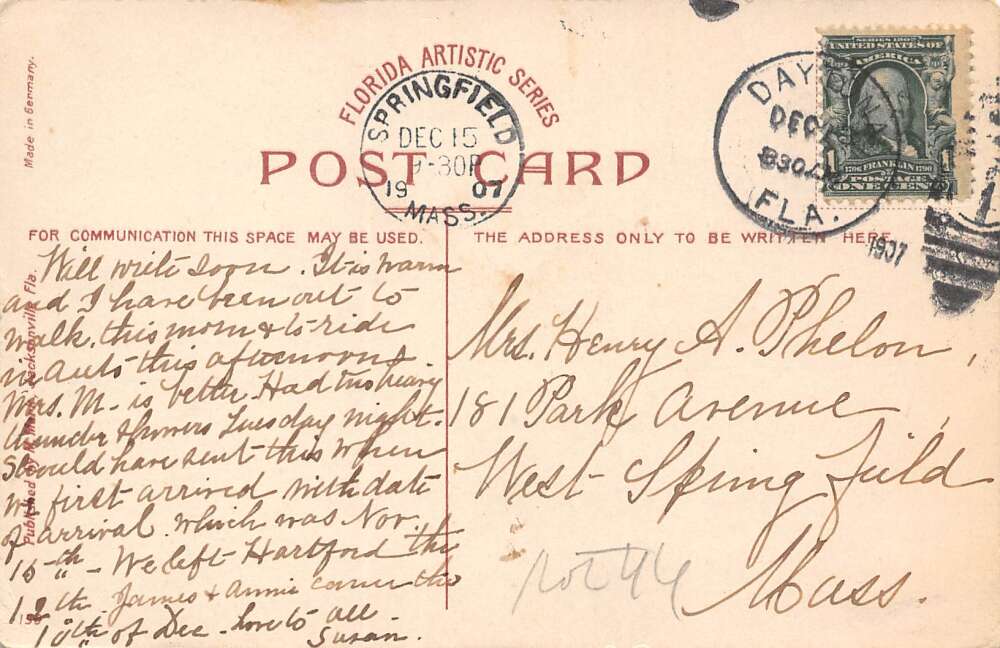 FLORIDA ARTISTIC SERIES
POST CARD
SPRINGFIELD
DEC 15
-30P
19 07
MASS.
DAYTONA
DEC
830
FLA.
1907
SERIES 1902
UNITED STATES OF
AMERICA
1 1790 FRANKLIN 1790 1
POSTAGE
ONE CENT
Made in Germany.
Published by Jacksonville, Fla.
FOR COMMUNICATION THIS SPACE MAY BE USED.
THE ADDRESS ONLY TO BE WRITTEN HERE.
Will write soon. It is warm
and I have been out to
walk, this morn & to ride
in auto this afternoon &
Mrs. M- is better. Had two heavy
thunder showers Tuesday night.
Should have sent this when
we first arrived with date
of arrival which was Nov.
15th - We left Hartford the
12th. James & Annie came the
10th of Dec - love to all
Susan.
Mrs. Henry A. Phelon,
181 Park Avenue,
West Springfield
Mass.